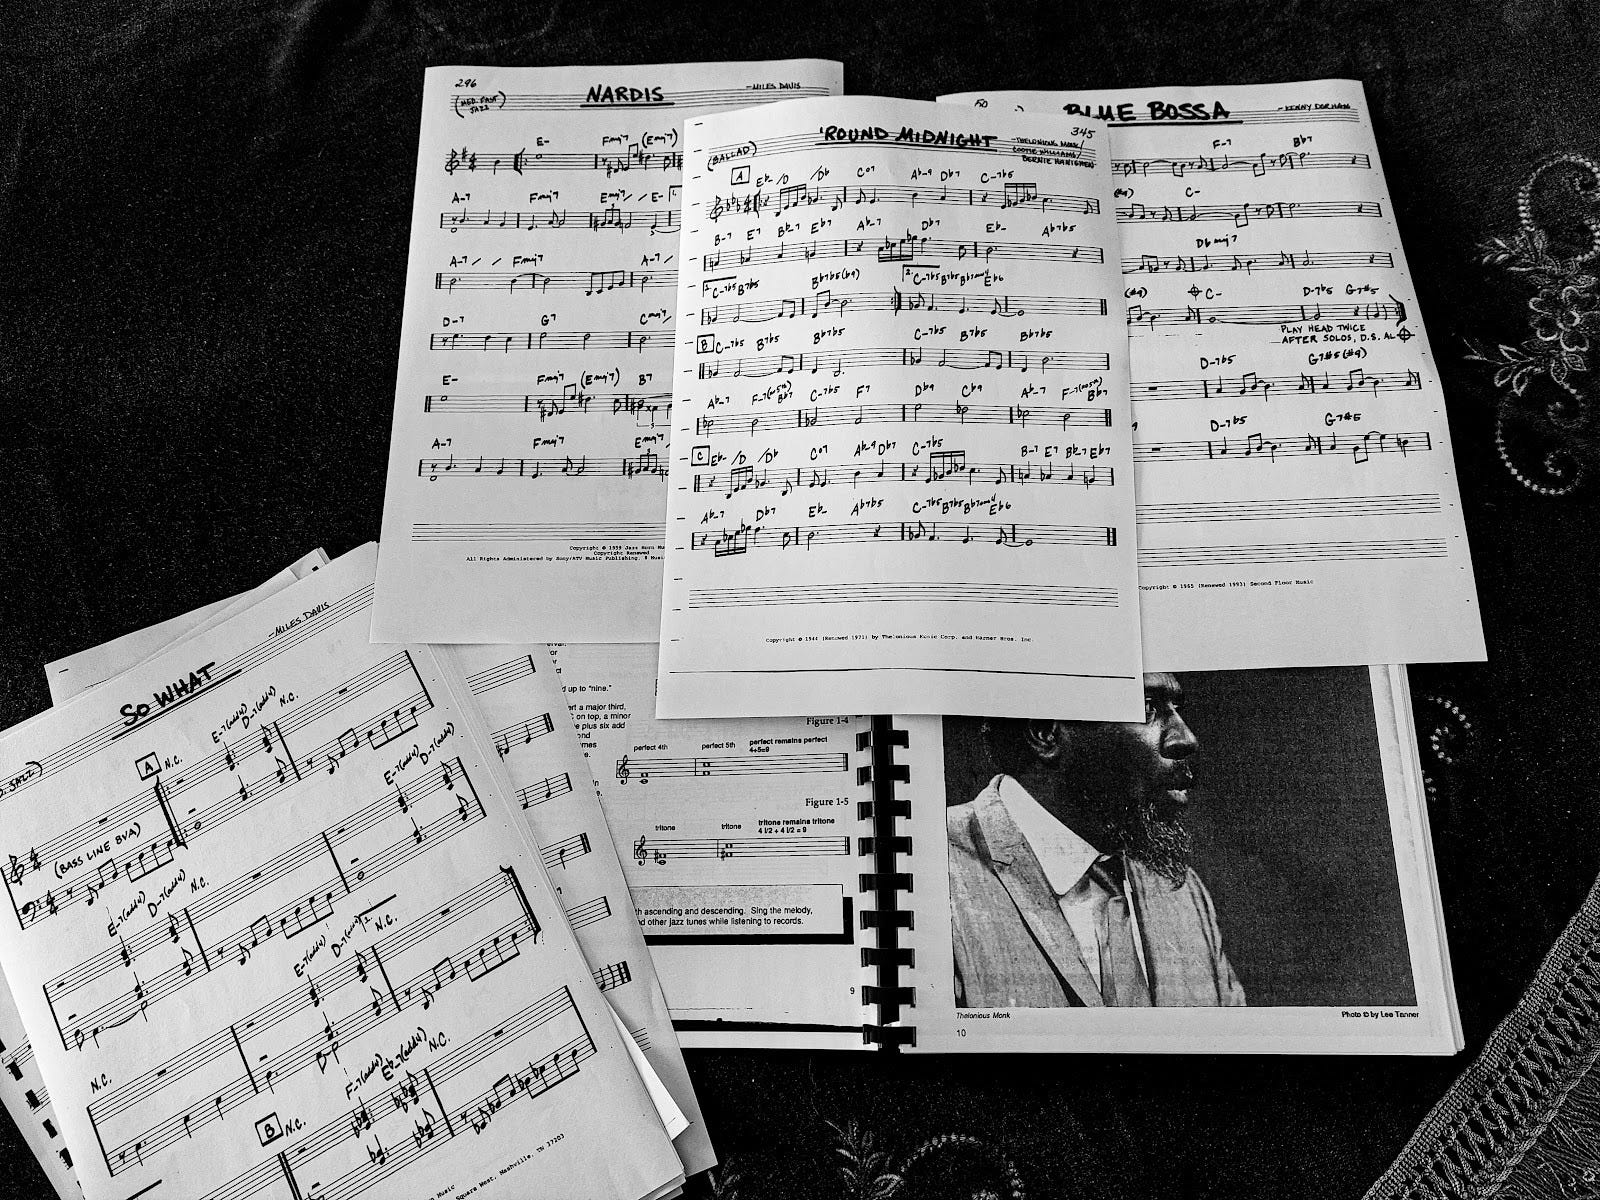 296
NARDIS
-MILES DAVIS
(MED. FAST
JAZZ)
E- Fmaj7 (Emaj7)
A-7 Fmaj7 Emaj7 / / E- 1.
A-7 / / Fmaj7 A-7 /
D-7 G7 Cmaj7
E- Fmaj7 (Emaj7) B7
3
A-7 Fmaj7
3
Copyright © 1959 Jazz Horn
Copyright Renewed
All Rights Administered by Sony/ATV Music Publishing, 8
'ROUND MIDNIGHT
345
-THELONIOUS MONK/
COOTIE WILLIAMS/
BERNIE HANIGHEN
(BALLAD)
A Eb- /D /Db C07 Ab-9 Db7 C-7b5
B-7 E7 Bb-7 Eb7 Ab-7 Db7 Eb- Ab7b5
1. C-7b5 B7b5 Bb7b5(b9) 2. C-7b5 B7b5 Eb6
B C-7b5 B7b5 Bb7b5 C-7b5 B7b5 Bb7b5
Ab-7 Bb7 C-7b5 F7 Db9 Cb9 Ab-7 Bb7
C Eb- /D /Db C07 Ab-9 Db7 C-7b5 B-7 E7 Bb-7 Eb7
Ab-7 Db7 Eb- Ab7b5 C-7b5 B7b5 Eb6
Copyright © 1944 (Renewed 1971) by Thelonious Music Corp. and Warner Bros. Inc.
50
BLUE BOSSA
-KENNY DORHAM
F-7 Bb7
C-
Dbmaj7
(#9) C- D-7b5 G7#5
PLAY HEAD TWICE
AFTER SOLOS, D.S. AL
D-7b5 G7#5(#9)
D-7b5 G7#5
Copyright © 1965 (Renewed 1993) Second Floor Music
SO WHAT
-MILES DAVIS
JAZZ)
A N.C. E-7(add4) D-7(add4) N.C.
(BASS LINE 8VA)
E-7(add4) D-7(add4) N.C. E-7(add4) D-7(add4)
N.C. E-7(add4) 1. N.C.
B N.C. F-7(add4) Eb-7(add4) N.C.
Music
Square West, Nashville, TN 37203
or
d up to "nine."
ert a major third,
on top, a minor
plus six add
Figure 1-4
perfect 4th
perfect 5th
perfect remains perfect
4+5=9
Figure 1-5
tritone
tritone
tritone remains tritone
4 1/2 + 4 1/2 = 9
ascending and descending. Sing the melody,
other jazz tunes while listening to records.
9
Thelonious Monk
Photo © by Lee Tanner
10